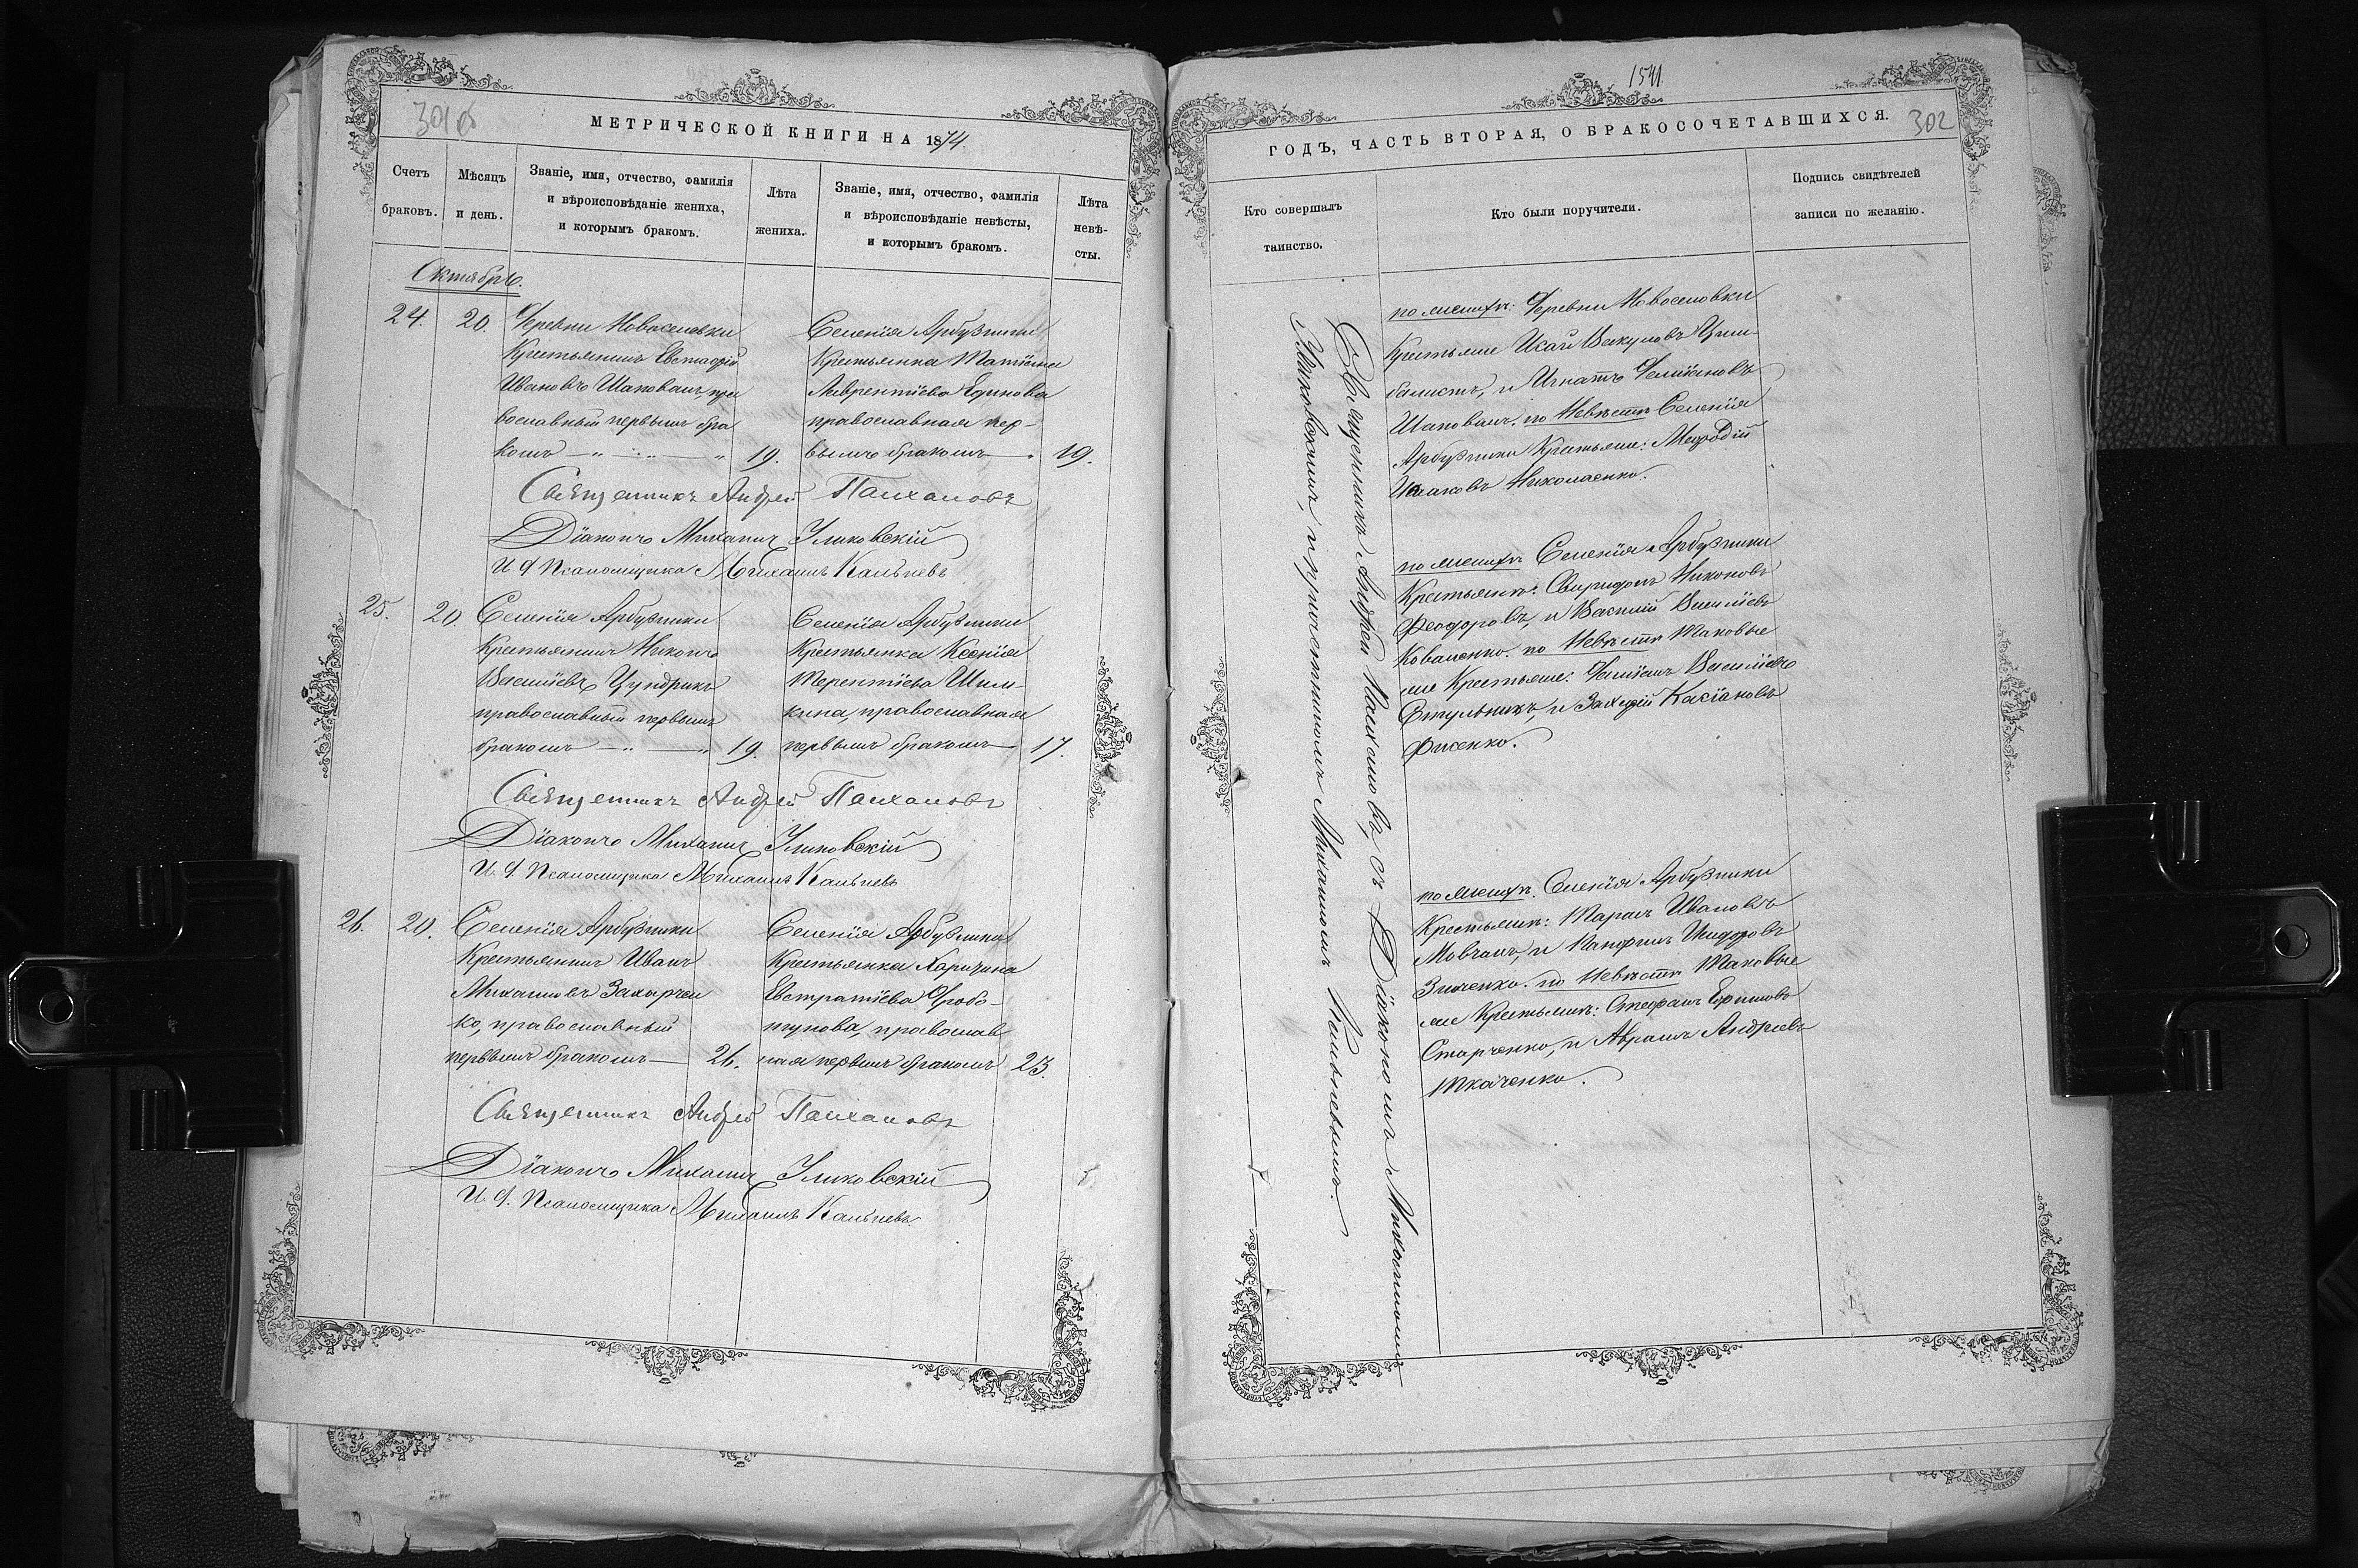 301б
МЕТРИЧЕСКОЙ КНИГИ НА 1874
Счетъ браковъ.
Мѣсяцъ и день.
Званіе, имя, отчество, фамилія
и вѣроисповѣданіе жениха,
и которымъ бракомъ.
Лѣта жениха.
Званіе, имя, отчество, фамилія
и вѣроисповѣданіе невѣсты,
и которымъ бракомъ.
Лѣта невѣ-
сты.
Октябрь.
24. 20. Деревни Новоселовки
Крестьянинъ Евстафій
Ивановъ Шаповалъ, пра
вославный первымъ бра
комъ 19.
Селенія Арбузинки
Крестьянка Татіана
Лаврентіева
православная пер-
вымъ бракомъ 19.
Священникъ Андрей Палхановъ
Діаконъ Михаилъ Уликовскій
И. д. Псаломщика Михаилъ Кальневъ
25. 20. Селенія Арбузинки
Крестьянинъ Никонъ
Василіевъ Цундрикъ
православный первымъ
бракомъ 19.
Селенія Арбузинки
Крестьянка Ксенія
Терентіева Шим-
кина, православная
первымъ бракомъ 17.
Священникъ Андрей Палхановъ
Діаконъ Михаилъ Уликовскій
И. д. Псаломщика Михаилъ Кальневъ
26. 20. Селенія Арбузинки
Крестьянинъ Иванъ
Михаиловъ Захарчен
ко, православный
первымъ бракомъ 26.
Селенія Арбузинки
Крестьянка Харитина
Евстратіева Дробо-
тунова, православ
ная первымъ бракомъ 23.
Священникъ Андрей Палхановъ
Діаконъ Михаилъ Уликовскій
И. д. Псаломщика Михаилъ Кальневъ
1541.
302
ГОДЪ, ЧАСТЬ ВТОРАЯ, О БРАКОСОЧЕТАВШИХСЯ.
Кто совершалъ
таинство.
Кто были поручители.
Подпись свидѣтелей
записи по желанію.
Священникъ Андрей Палхановъ, съ Діакономъ Михаиломъ
Уликовскимъ, и причетникомъ Михаиломъ Кальневымъ.
по женихѣ: Деревни Новоселовки
Крестьяне Исай Вакуловъ Цим-
балистъ, и Игнатъ Деміановъ
Шаповалъ. по Невѣстѣ Селенія
Арбузинки Крестьяне: Мефодій
Николаенко.
по женихѣ Селенія Арбузинки
Крестьяне: Спиридонъ Никоновъ
Феодоровъ, и Василій Василіевъ
Коваленко. по Невѣстѣ Таковые
же Крестьяне: Деміанъ Василіевъ
Стульникъ, и Касіановъ
Фисенко.
по женихѣ. Селенія Арбузинки
Крестьяне: Тарасъ Ивановъ
Мовчанъ, и Памфилъ Исидоровъ
Зинченко. по Невѣстѣ Таковые
же Крестьяне: Стефанъ Ефимовъ
Старченко, и Аврамъ Андреевъ
Ткаченко.